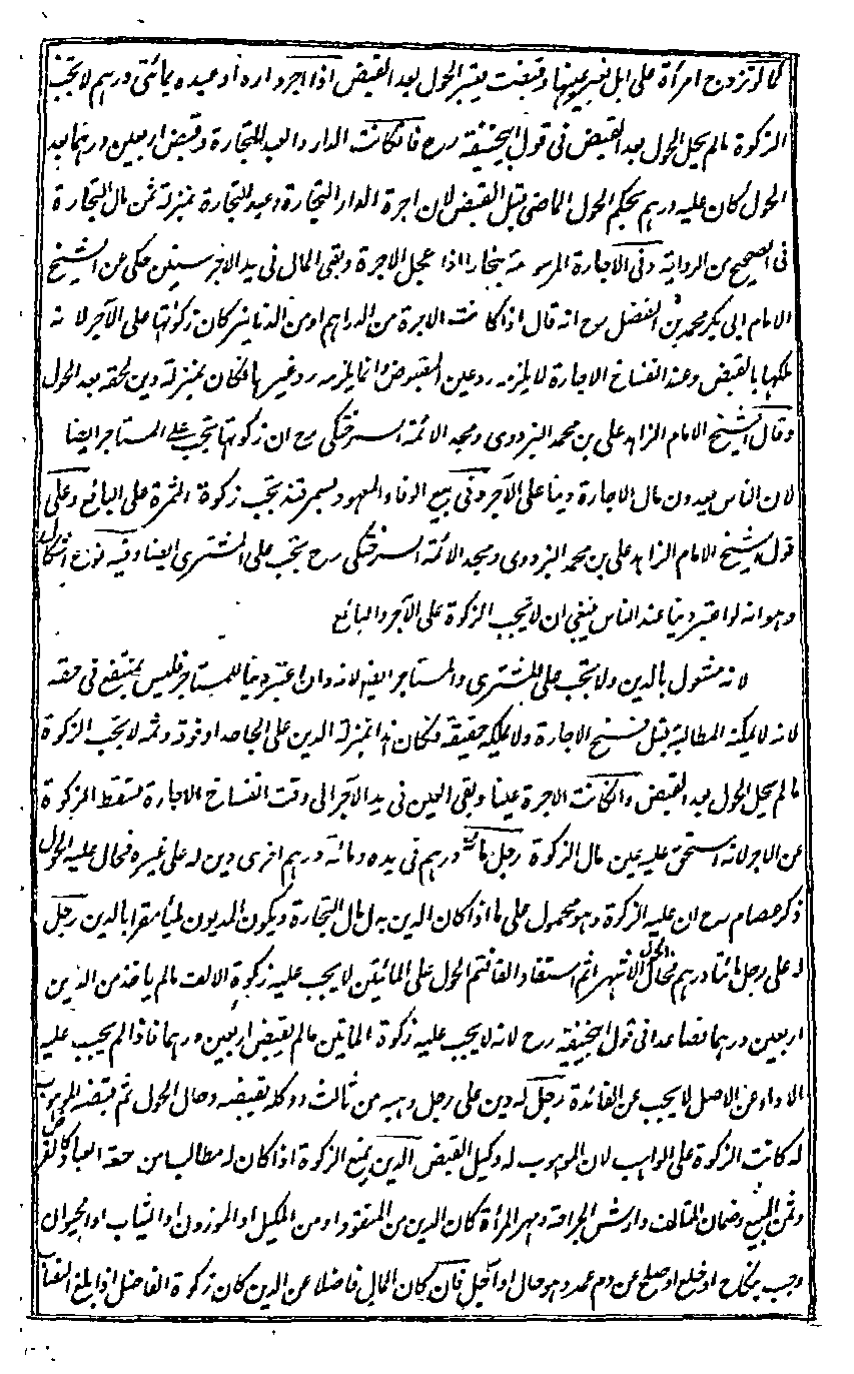 كما لو تزوج امرأة على ابل بغير عينها وقبضت يعتبر الحول بعد القبض اذا اجر داره او عبده بمائتى درهم لا تجب
الزكوة مالم يحل الحول بعد القبض فى قول ابيحنيفة رح فانكانت الدار والعبد للتجارة وقبض اربعين درهما بعد
الحول كان عليه درهم بحكم الحول الماضى قبل القبض لان اجرة الدار التجارة وعبد التجارة بمنزلة ثمن مال التجارة
فى الصحيح من الرواية وفى الاجارة المرسومة ببخارا اذا عجل الاجرة وبقى المال فى يد الآجر سنين حكى عن الشيخ
الامام ابى بكر محمد بن الفضل رح انه قال اذا كانت الاجرة من الدراهم او من الدنانير كان زكوتها على الآجر لانه
ملكها بالقبض وعند انفساخ الاجارة لا يلزمه رد عين المقبوض وانما يلزمه رد غيرها فكان بمنزلة دين لحقه بعد الحول
وقال الشيخ الامام الزاهد على بن محمد البزدوى ومجد الائمة السرخكى رح ان زكوتها تجب على المستاجر ايضا
لان الناس يعدون مال الاجارة دينا على الآجر وفى بيع الوفاء المعهود بسمرقند تجب زكوة الثمرة على البائع وعلى
قول الشيخ الامام الزاهد على بن محمد البزدوى ومجد الائمة السرخكى رح تجب على المشترى ايضا وفيه نوع اشكال
وهو انه لو اعتبر دينا عند الناس ينبغى ان لا تجب الزكوة على الآجر والبائع
لانه مشغول بالدين ولا تجب على المشترى والمستاجر ايضا لانه وان اعتبر دينا للمستاجر فليس بمنتفع فى حقه
لانه لا يمكنه المطالبة قبل فسخ الاجارة ولا يملكه حقيقة فكان هذا بمنزلة الدين على الجاحد او فوقه وثمه لا تجب الزكوة
مالم يحل الحول بعد القبض وانكانت الاجرة عينا وبقى العين فى يد الآجر الى وقت انفساخ الاجارة تسقط الزكوة
عن الآجر لانه استحق عليه عين مال الزكوة رجل له مائة درهم فى يده ومائة درهم اخرى دين له على غيره فحال عليه الحول
ذكر عصام رح ان عليه الزكوة وهو محمول على ما اذا كان الدين بدل مال التجارة ويكون المديون مليا مقرا بالدين رجل
له على رجل مائتا درهم فحال الحول الا شهرا ثم استفاد الفا فتم الحول على المائتين لا يجب عليه زكوة الالف مالم ياخذ من الدين
اربعين درهما فصاعدا فى قول ابيحنيفة رح لانه لا يجب عليه زكوة المائتين مالم يقبض اربعين درهما فاذا لم يجب عليه
الاداء عن الاصل لا يجب عن الفائدة رجل له دين على رجل وهبه من ثالث ووكله بقبضه وحال الحول ثم قبضه الموهوب
له كانت الزكوة على الواهب لان الموهوب له وكيل القبض الدين يمنع الزكوة اذا كان له مطالب من جهة العباد كالقرض
وثمن المبيع وضمان المتالف وارش الجراحة ومهر المرأة كان الدين من النقود او من المكيل او الموزون او الثياب او الحيوان
وجب بنكاح او خلع او صلح عن دم عمد وهو حال او آجل فان كان المال فاضلا عن الدين كان زكوة الفاضل اذا بلغ النصاب